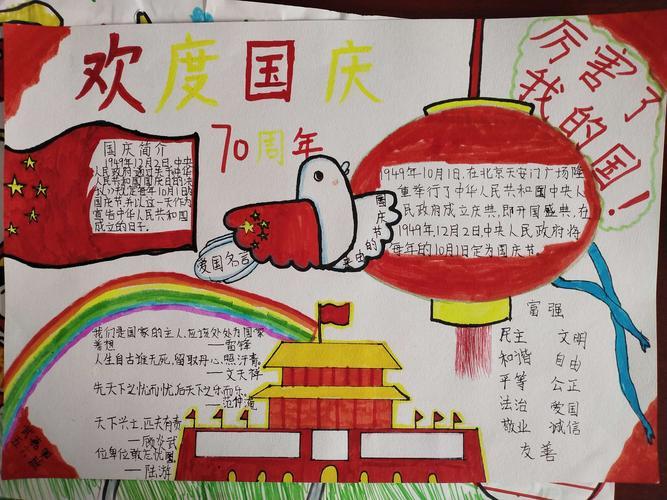 欢度国庆
70周年
厉害了
我的国!
国庆简介
1949年12月2日,中央
人民政府通过关于中华
人民共和国国庆日的决
议》规定每年10月1日为
国庆节,并以这一天作为
宣告中华人民共和国
成立的日子。
爱国名言
国庆节
的
来由
1949年10月1日,在北京天安门广场隆
重举行了中华人民共和国中央人
民政府成立庆典,即开国盛典,在
1949年12月2日中央人民政府将
每年的10月1日定为国庆节。
我们是国家的主人,应该处处为国家
着想
——雷锋
人生自古谁无死,留取丹心照汗青。
——文天祥
先天下之忧而忧,后天下之乐而乐。
——范仲淹
天下兴亡,匹夫有责
——顾炎武
位卑未敢忘忧国
——陆游
富强
民主 文明
和谐 自由
平等 公正
法治 爱国
敬业 诚信
友善